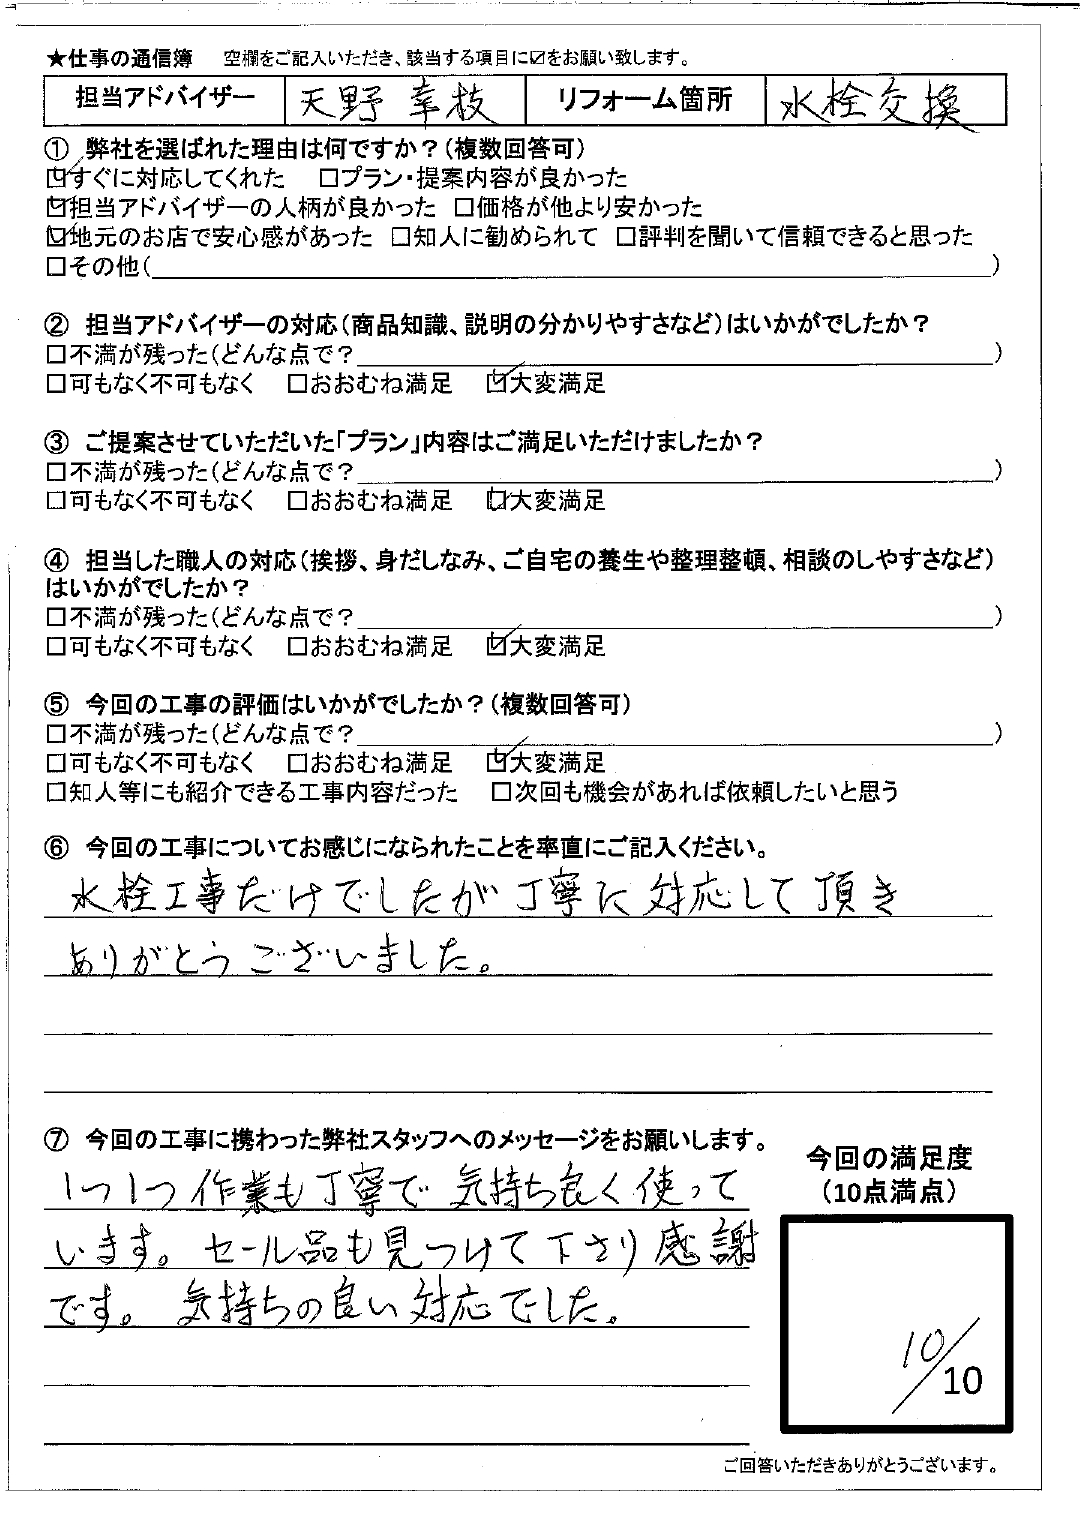 ★仕事の通信簿　空欄をご記入いただき、該当する項目に☑をお願い致します。
担当アドバイザー 天野 幸枝 リフォーム箇所 水栓交換
① 弊社を選ばれた理由は何ですか？（複数回答可）
☑すぐに対応してくれた　□プラン・提案内容が良かった
☑担当アドバイザーの人柄が良かった　□価格が他より安かった
☑地元のお店で安心感があった　□知人に勧められて　□評判を聞いて信頼できると思った
□その他（　）
② 担当アドバイザーの対応（商品知識、説明の分かりやすさなど）はいかがでしたか？
□不満が残った（どんな点で？　）
□可もなく不可もなく　□おおむね満足　☑大変満足
③ ご提案させていただいた「プラン」内容はご満足いただけましたか？
□不満が残った（どんな点で？　）
□可もなく不可もなく　□おおむね満足　☑大変満足
④ 担当した職人の対応（挨拶、身だしなみ、ご自宅の養生や整理整頓、相談のしやすさなど）
はいかがでしたか？
□不満が残った（どんな点で？　）
□可もなく不可もなく　□おおむね満足　☑大変満足
⑤ 今回の工事の評価はいかがでしたか？（複数回答可）
□不満が残った（どんな点で？　）
□可もなく不可もなく　□おおむね満足　☑大変満足
□知人等にも紹介できる工事内容だった　□次回も機会があれば依頼したいと思う
⑥ 今回の工事についてお感じになられたことを率直にご記入ください。
水栓工事だけでしたが丁寧に対応して頂き
ありがとうございました。
⑦ 今回の工事に携わった弊社スタッフへのメッセージをお願いします。
1つ1つ作業も丁寧で気持ち良く使って
います。セール品も見つけて下さり感謝
です。気持ちの良い対応でした。
今回の満足度
（10点満点）
10/10
ご回答いただきありがとうございます。